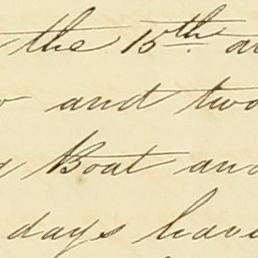 the 15th
and two
Boat and
days have